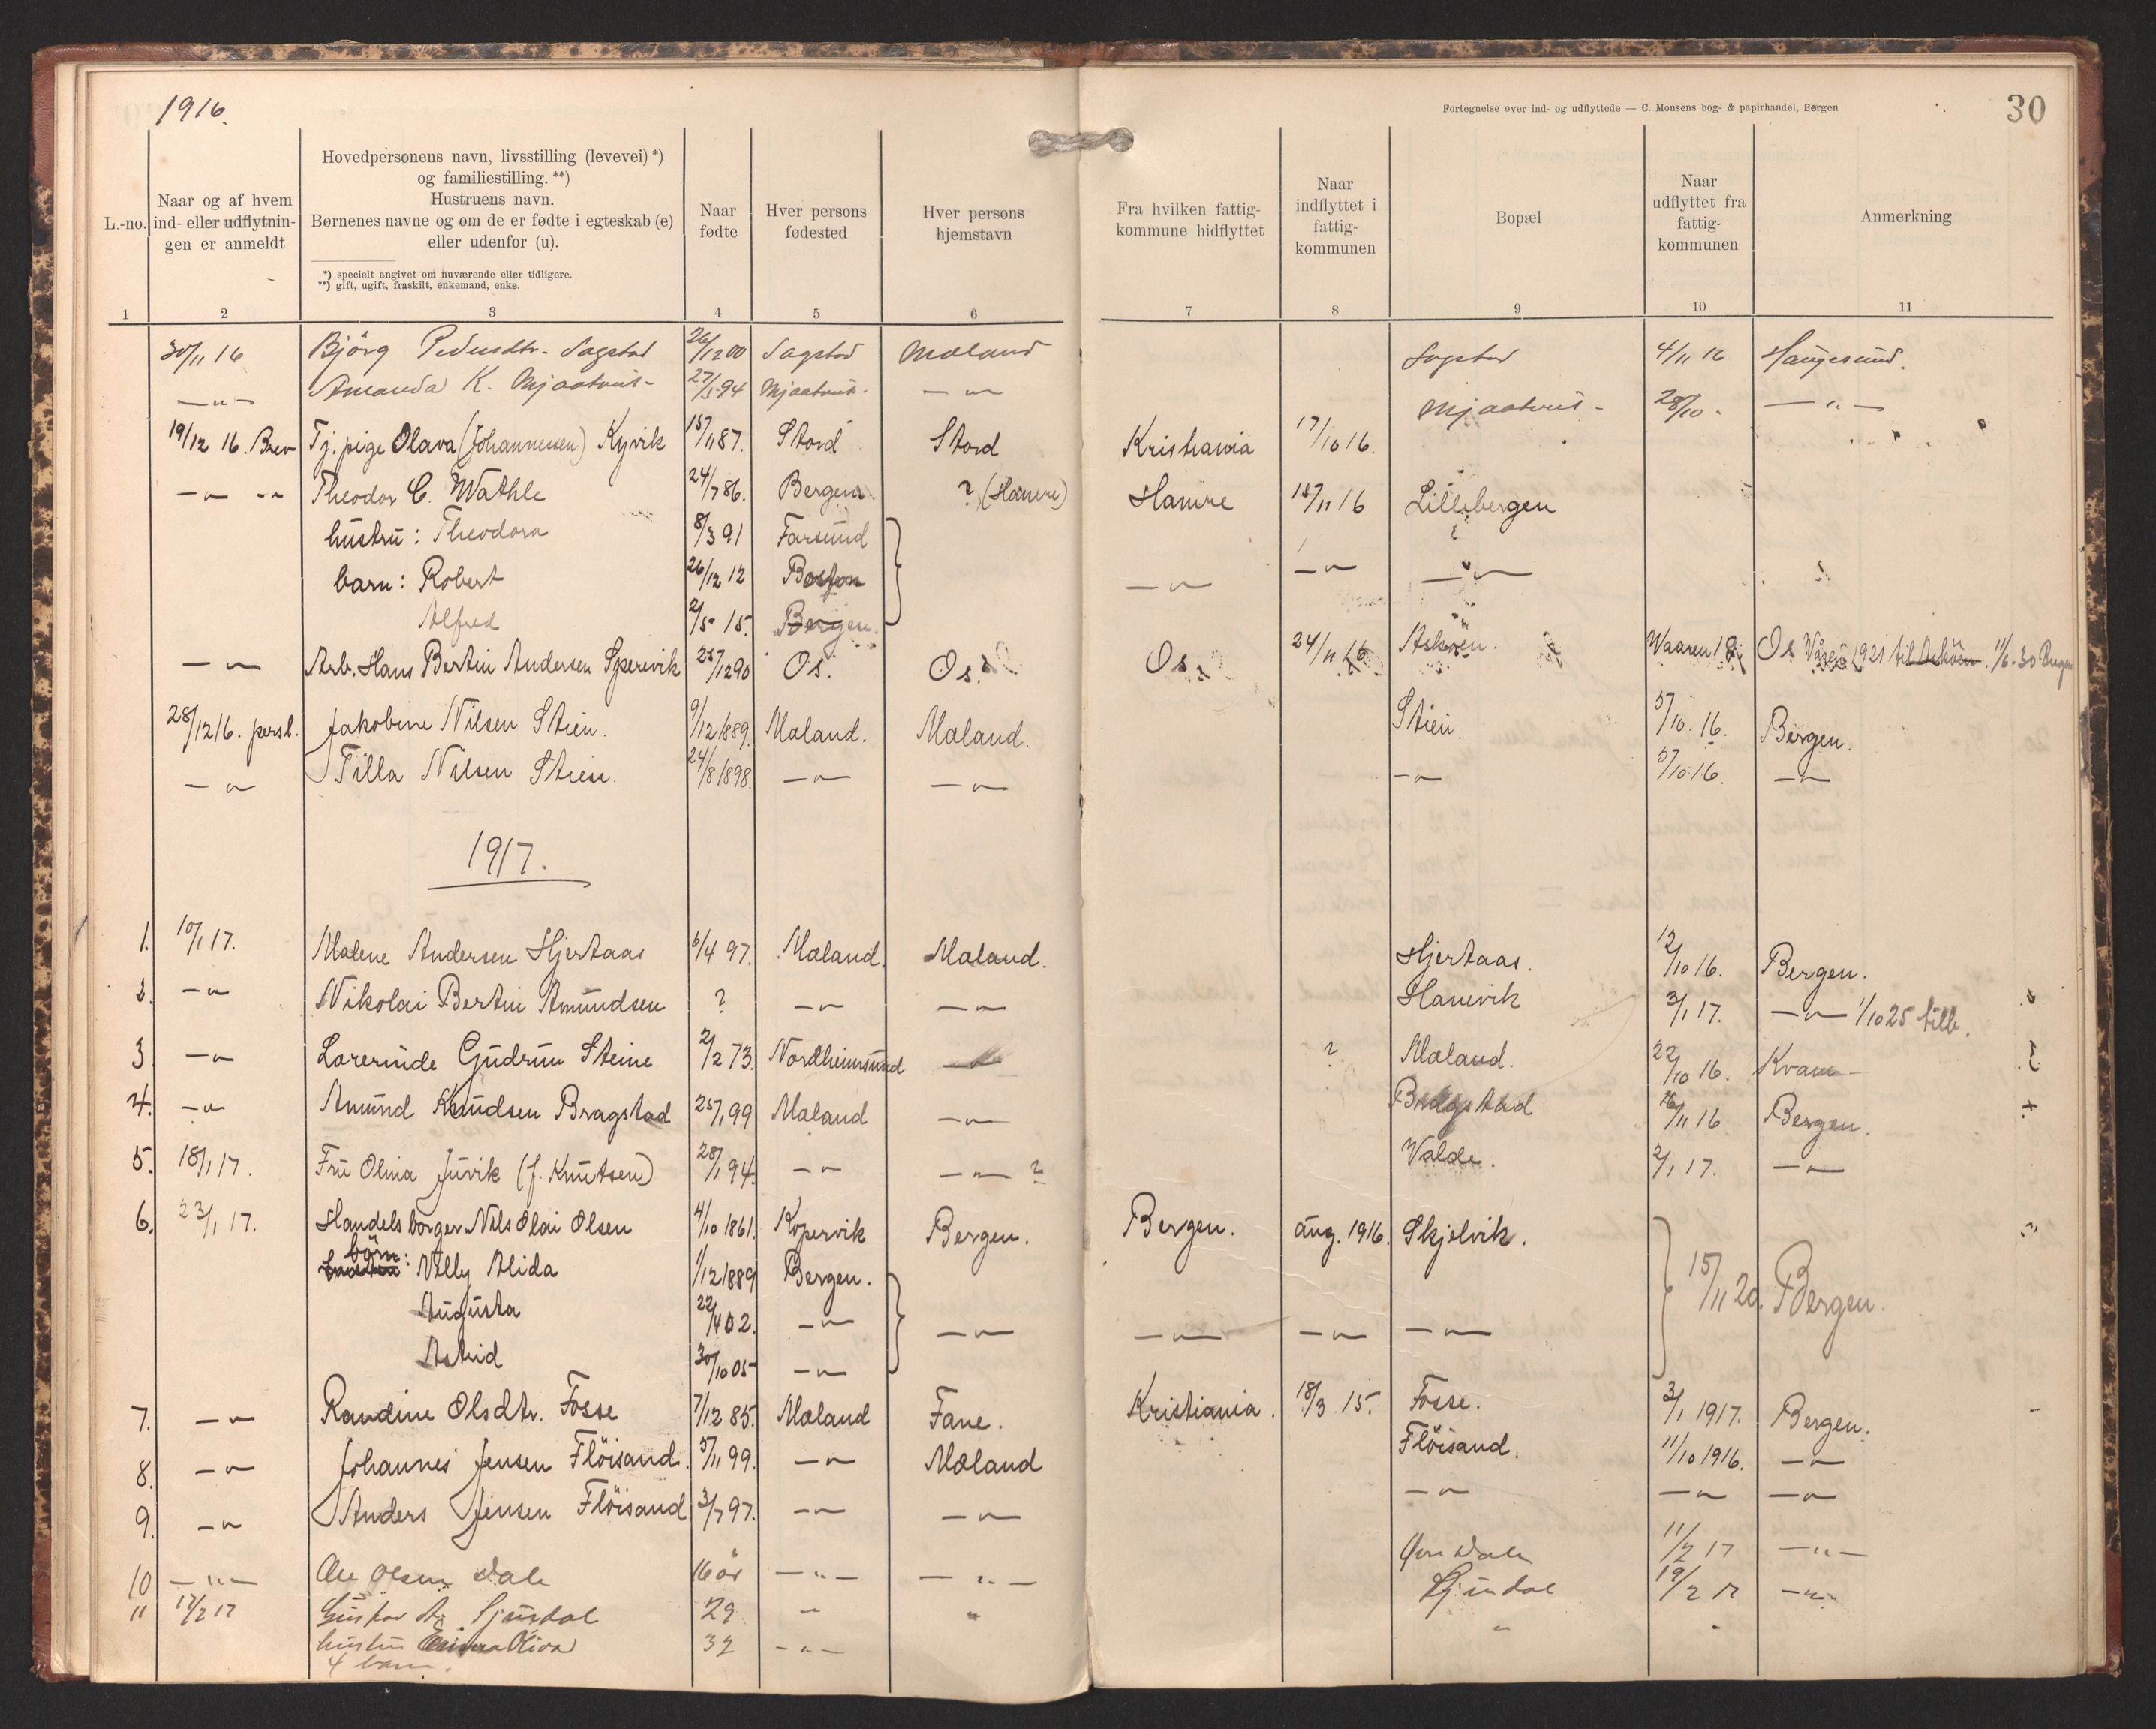 1916.
Fortegnelse over ind- og udflyttede — C. Monsens bog- & papirhandel, Bergen
30
L.-no.
Naar og af hvem ind- eller udflytnin-gen er anmeldt
Hovedpersonens navn, livsstilling (levevei) *)
og familiestilling. **)
Hustruens navn.
Børnenes navne og om de er fødte i egteskab (e)
eller udenfor (u).
*) specielt angivet om nuværende eller tidligere.
**) gift, ugift, fraskilt, enkemand, enke.
Naar fødte
Hver persons fødested
Hver persons hjemstavn
Fra hvilken fattig-kommune hidflyttet
Naar indflyttet i fattig-kommunen
Bopæl
Naar udflyttet fra fattig-kommunen
Anmerkning
1 2 3 4 5 6 7 8 9 10 11
30/11 16 Björg Pedersdtr. Sagstad 26/12 00 Sagstad Mæland Sagstad 4/11 16 Haugesund.
—"— Amanda K. Mjaatveit 27/5 94 Mjaatveit —"— Mjaatveit 28/10 —"—
19/12 16. Brev Tj. pige Olava (Johannessen) Kyvik 15/11 87. Stord Stord Kristiania 17/10 16.
—"— Theodor C. Wathle 24/7 86. Bergen ? (Hamre) Hamre 15/11 16 Lillebergen
hustru: Theodora 8/3 91 Farsund
barn: Robert 26/12 12 Boston —"— —"— —"—
Alfred 2/5 15. Bergen.
—"— Arb. Hans Bertin Andersen Sperevik 25/12 90 Os. Os. Os 24/11 16 Askøen. Vaaren 18 Os Våren 1921 til Askøen. 11/6-30 Bergen
28/12 16. persl. Jakobine Nilsen Stien. 9/12 1889. Mæland. Mæland. Stien. 5/10. 16. Bergen.
—"— Tilla Nilsen Stien. 24/8 1898. —"— —"— —"— 5/10 16. —"—
1917.
1. 10/1 17. Malene Andersen Hjertaas 6/4 97. Mæland. Mæland. Hjertaas. 12/10 16. Bergen.
2. —"— Nikolai Bertin Amundsen ? —"— —"— Hanevik 3/1 17. —"— 1/10 25 tilb.
3 —"— Lærerinde Gudrun Steine 2/2 73. Nordheimsund —"— ? Mæland. 22/10 16. Kvam
4. —"— Amund Knudsen Bragstad 25/1 99 Mæland —"— Bragstad 26/11 16 Bergen.
5. 18/1 17. Fru Olina Juvik (f. Knutsen) 28/1 94. —"— —"— ? Valde. 2/1 17. —"—
6. 23/1 17. Handelsborger Nils Olai Olsen 4/10 1861. Kopervik Bergen. Bergen. aug. 1916. Skjelvik.
børn: Nelly Alida 1/12 1889 Bergen. 15/11 20. Bergen.
Augusta 22/4 02. —"— —"— —"— —"— —"—
Astrid 30/10 05 —"—
7. —"— Randine Olsdtr. Fosse 7/12 85. Mæland Fane. Kristiania. 18/3 15. Fosse. 3/1 1917. Bergen.
8. —"— Johannes Jensen Flöisand. 5/11 99. —"— Mæland Flöisand. 11/10 1916. —"—
9. —"— Anders Jensen Flöisand 3/7 97. —"— —"— —"— —"— —"—
10 —"— Ole Olsen Dale 16 år —"— —"— Øvre Dale 11/2 17 —"—
11 17/2 17 Gustav A. Gjendal 29 " " Gjendal 19/2 17 —"—
hustru Oliva 32 —"— " "
4 barn.